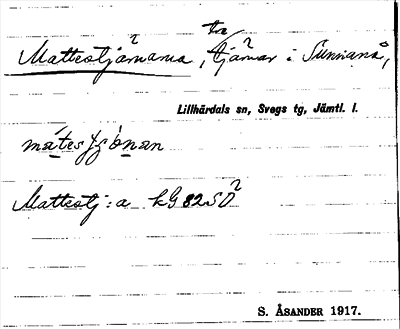 tre
Mattestjärnarna, tjärnar i Sunnanå,
Lillhärdals sn, Svegs tg, Jämtl. l.
Mattestj:a kG 82SO
S. ÅSANDER 1917.